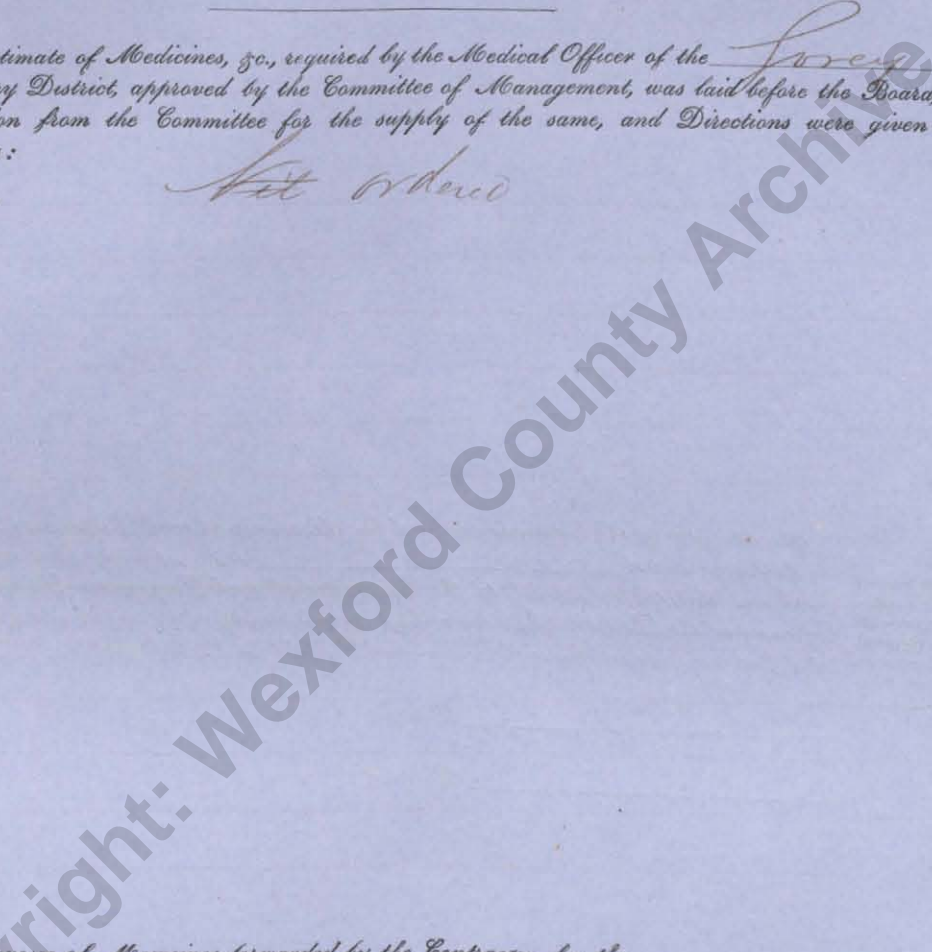 timate of Medicines, &c., required by the Medical Officer of the Gorey
y District, approved by the Committee of Management, was laid before the Board,
on from the Committee for the supply of the same, and Directions were given
:
ordered
Medicines forwarded by the Contractor
yright: Wexford County Archive